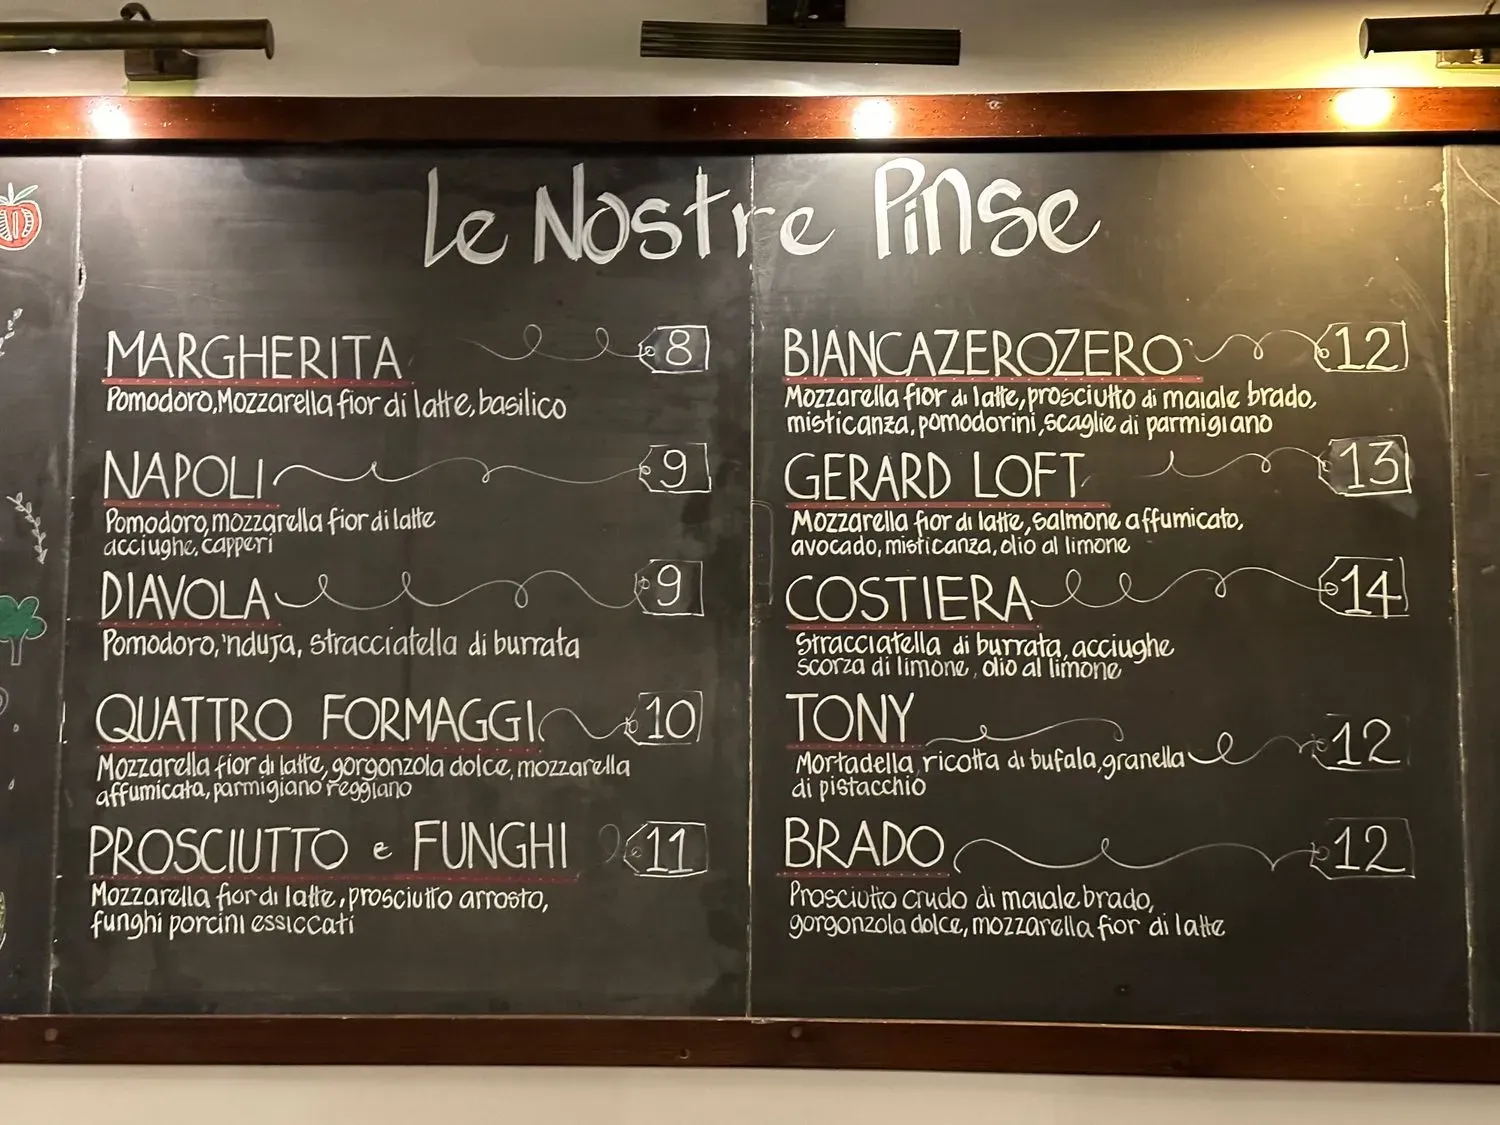 Le Nostre Pinse
MARGHERITA 8
Pomodoro, Mozzarella fior di latte, basilico
NAPOLI 9
Pomodoro, mozzarella fior di latte
acciughe, capperi
DIAVOLA 9
Pomodoro, 'nduja, stracciatella di burrata
QUATTRO FORMAGGI 10
Mozzarella fior di latte, gorgonzola dolce, mozzarella
affumicata, parmigiano reggiano
PROSCIUTTO e FUNGHI 11
Mozzarella fior di latte, prosciutto arrosto,
funghi porcini essiccati
BIANCAZEROZERO 12
Mozzarella fior di latte, prosciutto di maiale brado,
misticanza, pomodorini, scaglie di parmigiano
GERARD LOFT 13
Mozzarella fior di latte, salmone affumicato,
avocado, misticanza, olio al limone
COSTIERA 14
Stracciatella di burrata, acciughe
scorza di limone, olio al limone
TONY 12
Mortadella, ricotta di bufala, granella
di pistacchio
BRADO 12
Prosciutto crudo di maiale brado,
gorgonzola dolce, mozzarella fior di latte